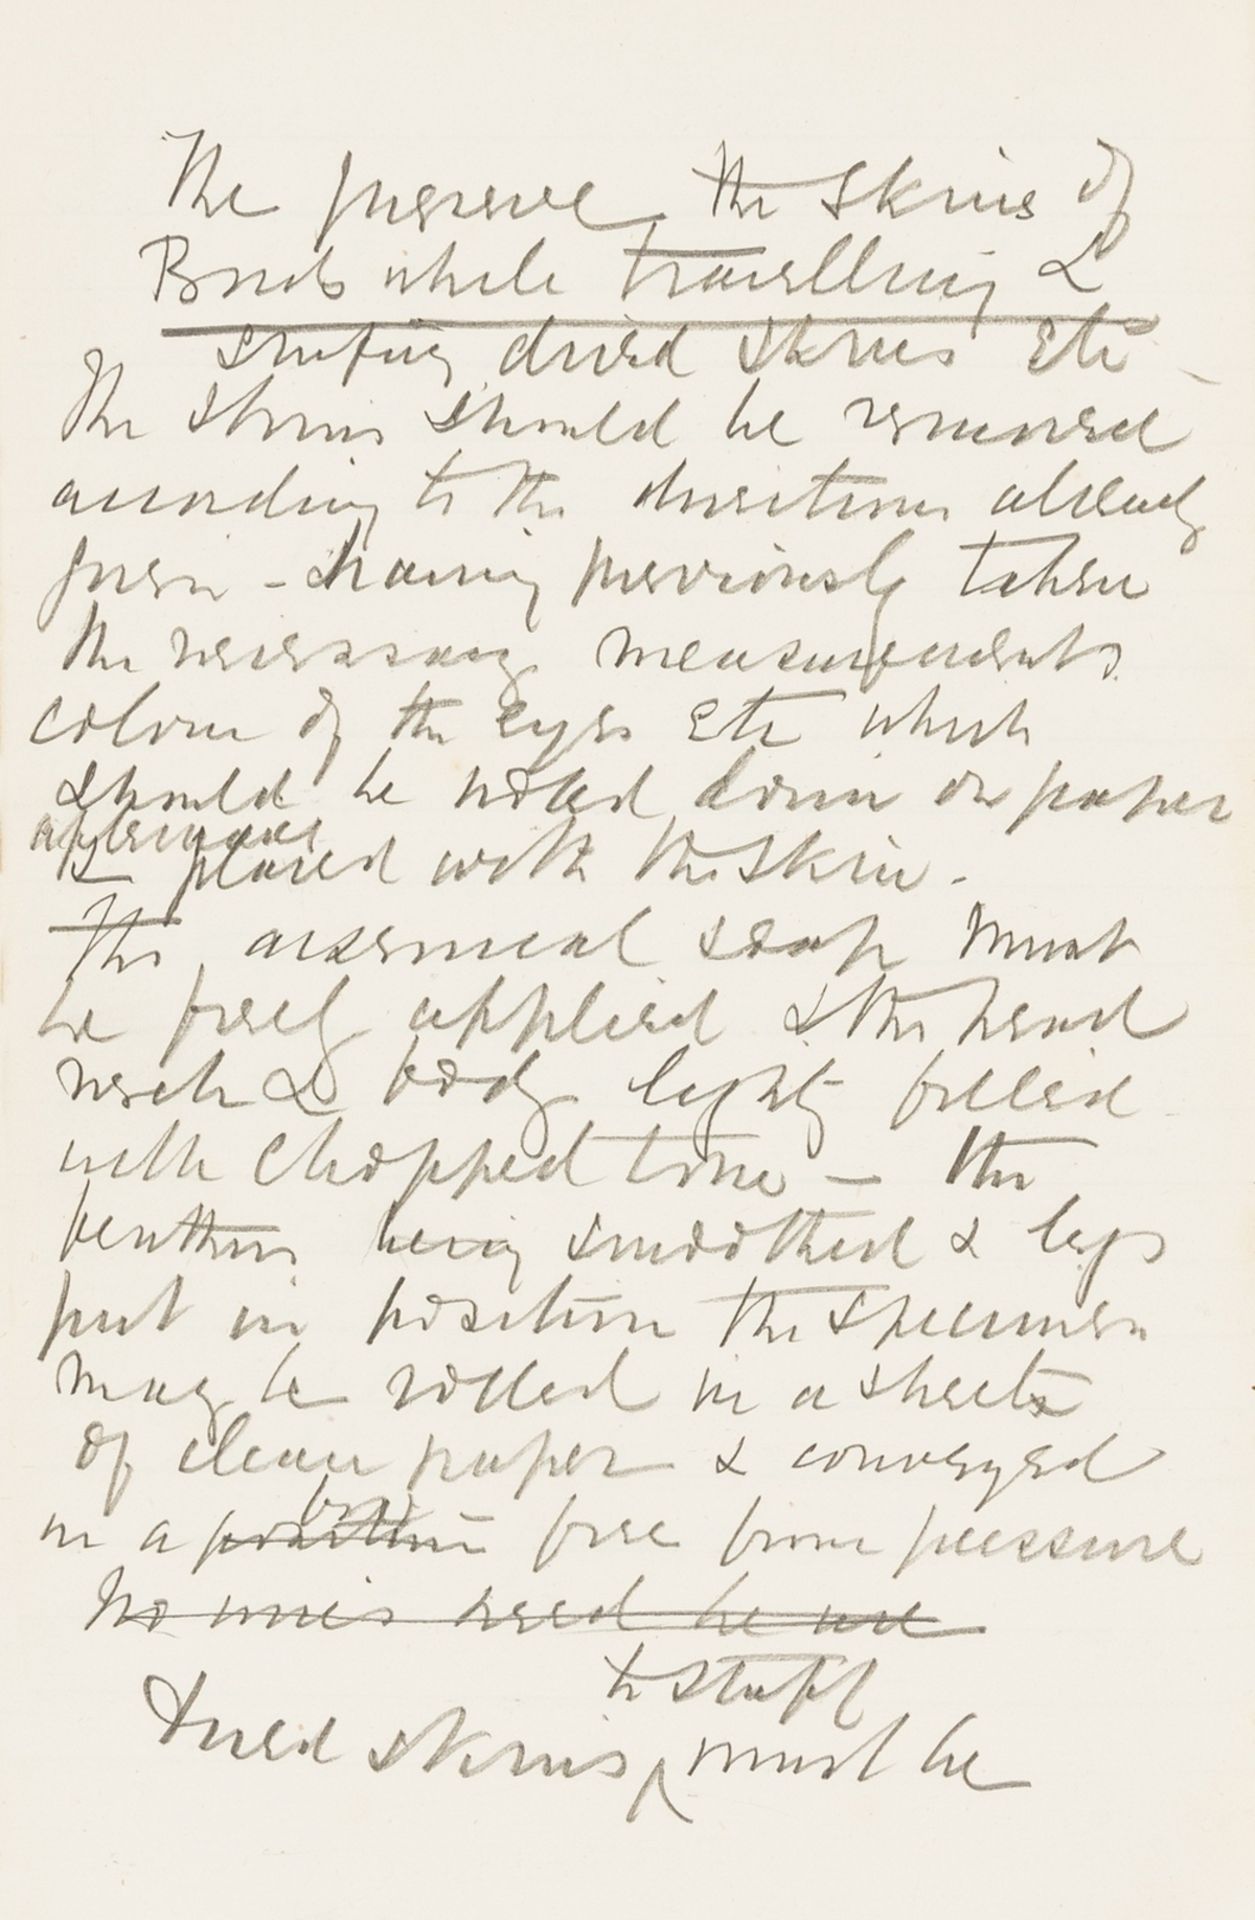 The preserve the skins of
Birds while travelling &
stuffing dried skins etc -
The skins should be removed
according to the directions already
given - having previously taken
the necessary measurements
colour of the eyes etc which
should be noted down on paper
afterwards
& placed with the skin.
The arsenical soap must
be freely applied & the head
neck & body lightly filled
with chopped tow - the
feathers being smoothed & legs
put in position the specimen
may be rolled in a sheet
of clean paper & conveyed
box
in a position free from pressure
No wires need be use
to stuff
Dried skins must be